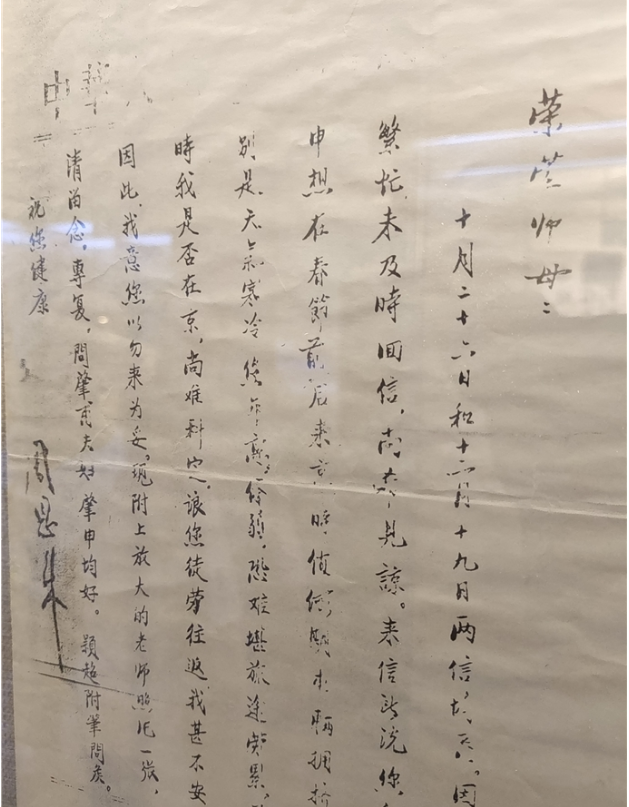 荣萱师母：
十月二十六日和十二月十九日两信均悉。因
繁忙未及時回信，尚希見諒。来信所说您
申想在春節前后来京 時值 車輛拥挤
别是天气寒冷 您年高体弱，恐难堪旅途劳累，
時我是否在京，尚难料定。讓您徒劳往返我甚不安
因此，我意您以勿来为妥。现附上放大的老师照片一张，
请留念。專复，問肇 夫妇肇申均好。颖超附筆問候。
祝您健康
周恩来
中華人